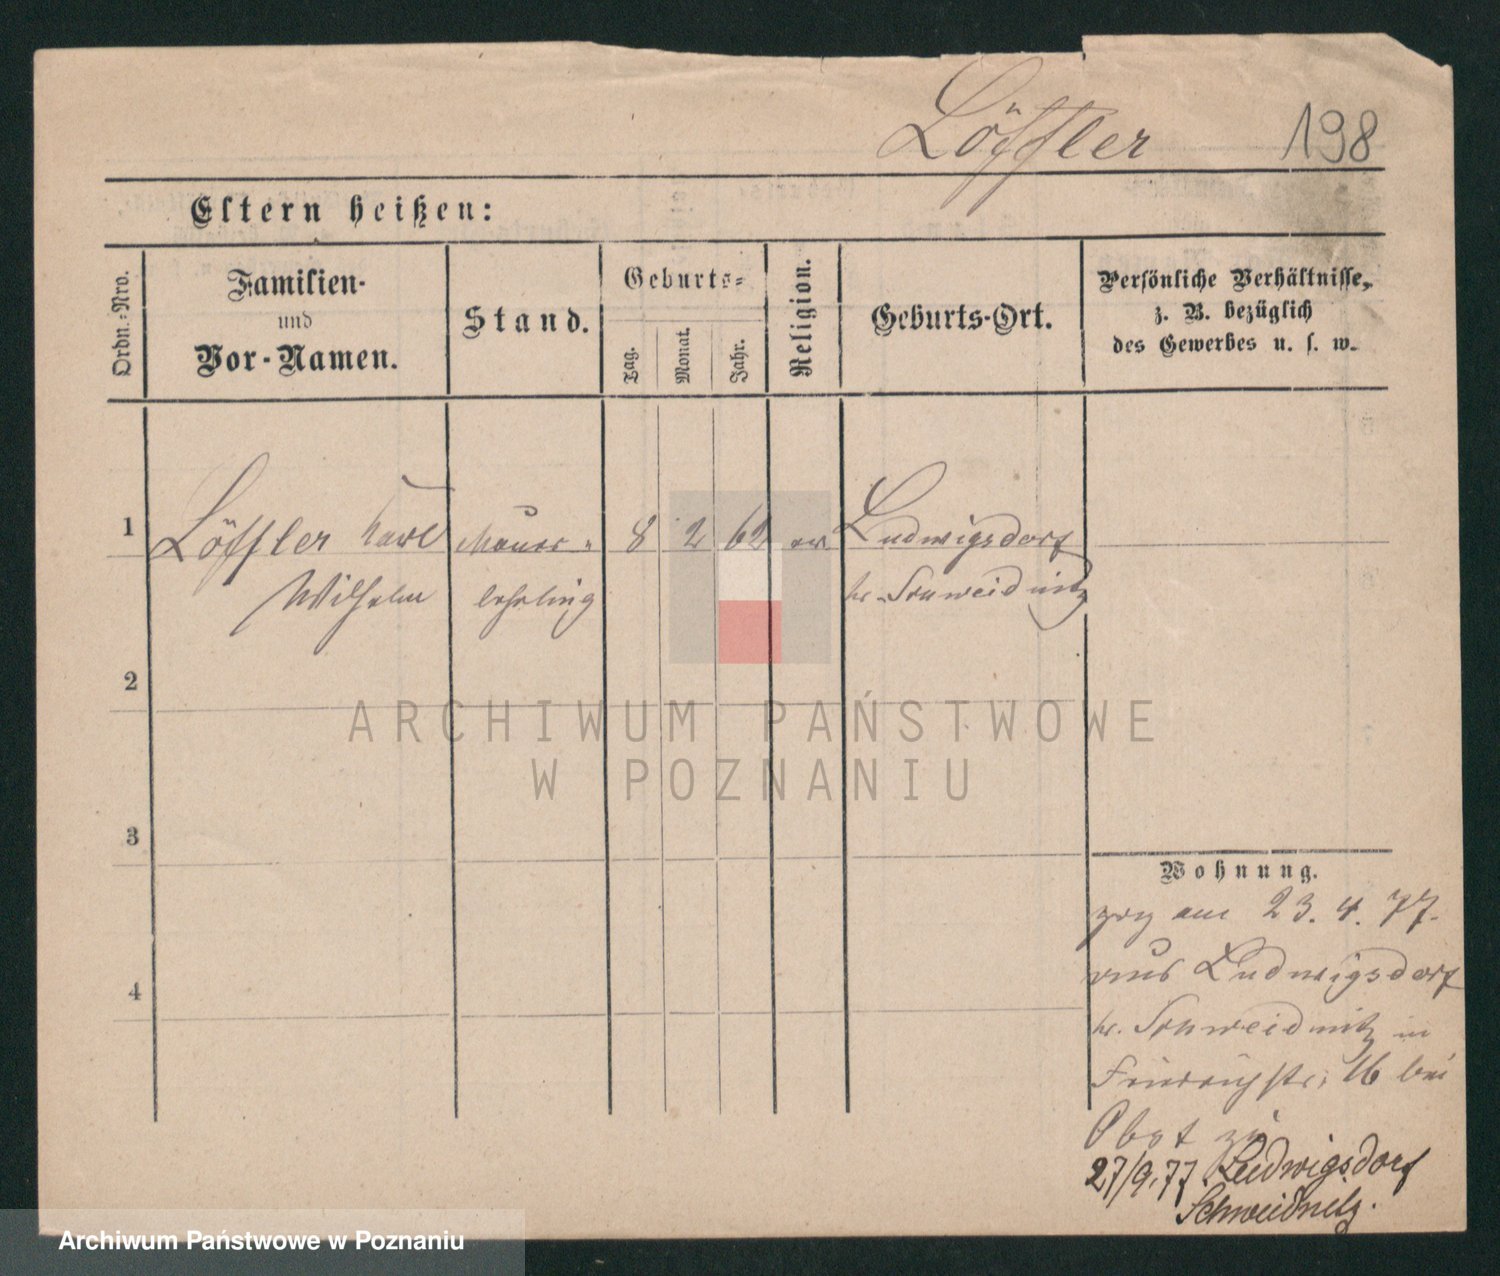 Löffler 198
Eltern heißen:
Ordn.-Nro.
Familien-
und
Vor-Namen.
Stand.
Geburts-
Tag.
Monat.
Jahr.
Religion.
Geburts-Ort.
Persönliche Verhältnisse,
z. B. bezüglich
des Gewerbes u. s. w.
1 Löffler Karl Maurer- 8 2 62 ev Ludwigsdorf
Wilhelm lehrling Kr. Schweidnitz
2
3
4
Wohnung.
zog am 23. 4. 77.
aus Ludwigsdorf
Kr. Schweidnitz in
Friedrichstr. 16 bei
Obst zu
27/9.77 Ludwigsdorf
Schweidnitz.
ARCHIWUM PAŃSTWOWE
W POZNANIU
Archiwum Państwowe w Poznaniu